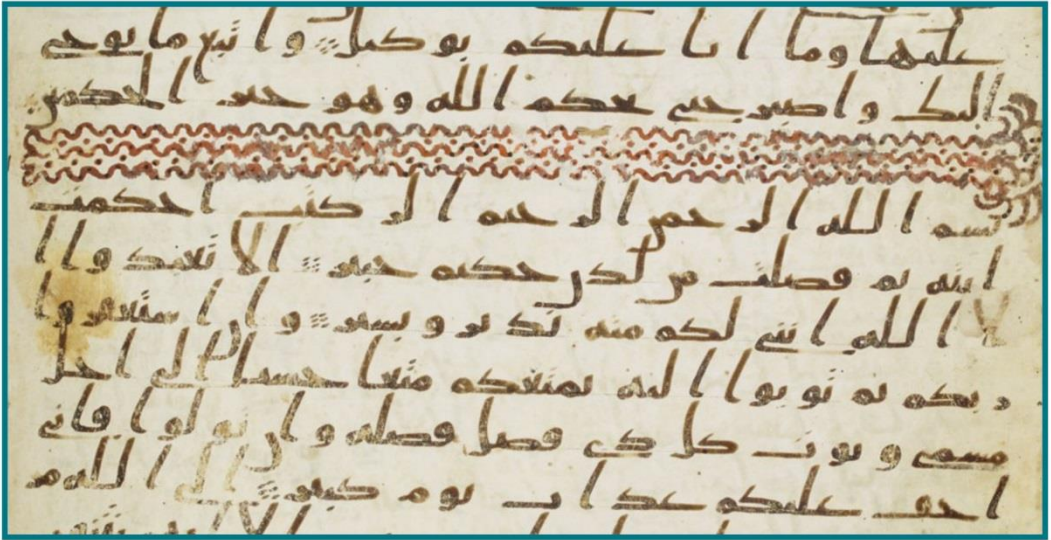 عليها وما انا عليكم بوكيل واتبع ما يوحى
اليك واصبر حتى يحكم الله وهو خير الحكمين
بسم الله الرحمن الرحيم الر كتب احكمت
ايته ثم فصلت من لدن حكيم خبير الا تعبدوا ا
لا الله انني لكم منه نذير وبشير وان استغفروا
ربكم ثم توبوا اليه يمتعكم متعا حسنا الى اجل
مسمى ويوت كل ذي فضل فضله وان تولوا فاني
اخف عليكم عذاب يوم كبير الى الله م